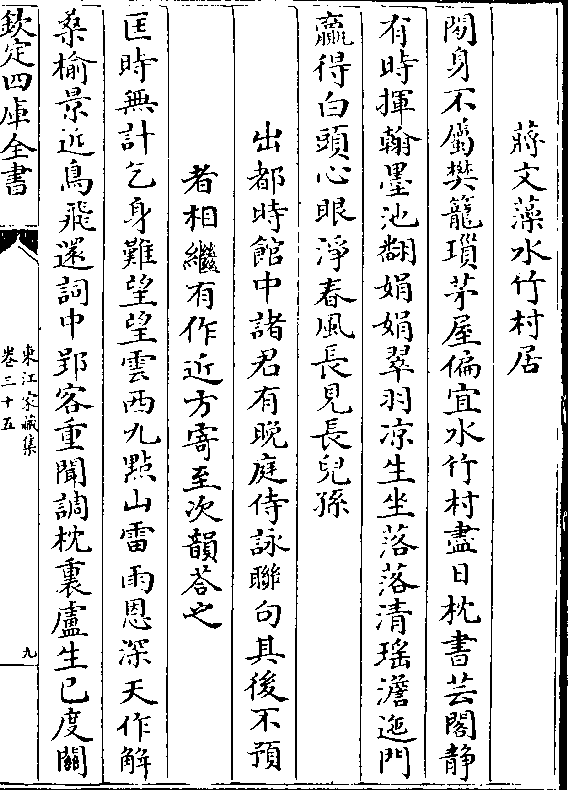 蔣文藻水竹村居
閒身不屬樊籠瑣茅屋偏宜水竹村盡日枕書芸閣静
有時揮翰墨池翻娟娟翠羽凉生坐落落清瑶澹迤門
贏得白頭心眼淨春風長見長兒孫
出都時館中諸君有晚庭侍詠聯句其後不預
者相繼有作近方寄至次韻荅之
匡時無計乞身難望望雲西九點山雷雨恩深天作解
桑榆景近鳥飛還詞中郢客重聞調枕裏盧生已度關
欽定四庫全書
東江家藏集
卷三十五
九